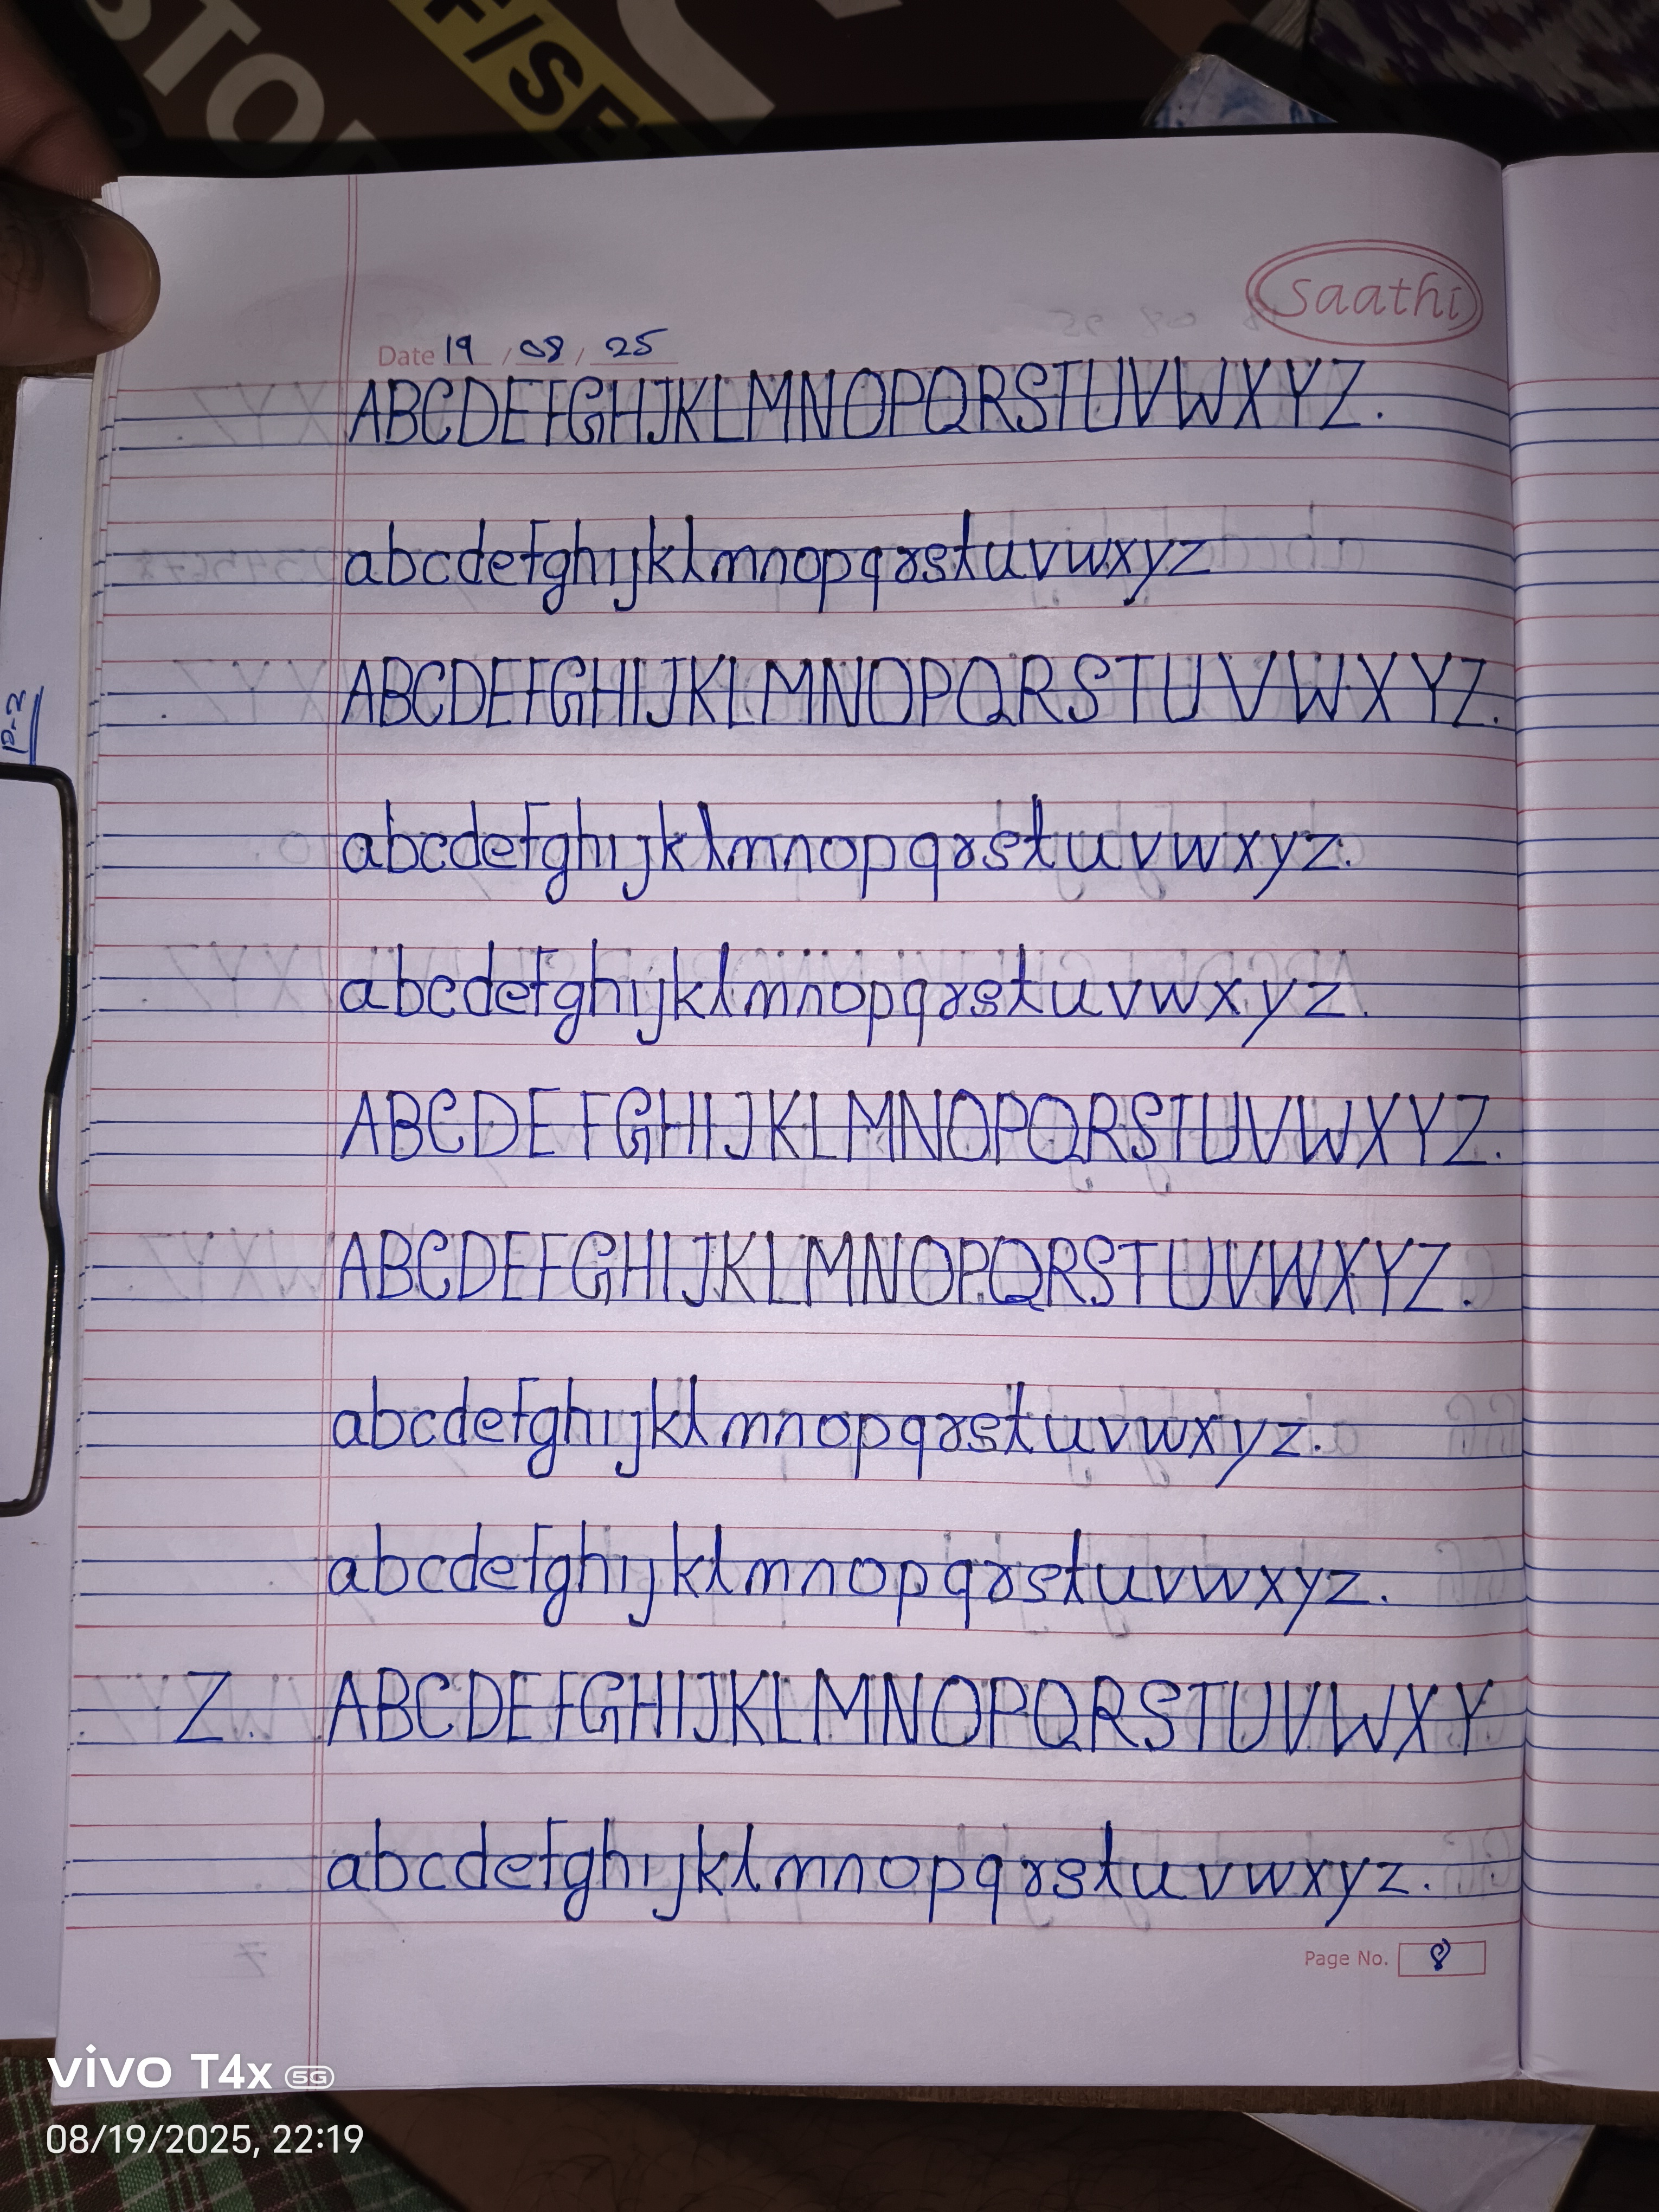 STO
F/SE
saathi
Date 19 / 08 / 25
ABCDEFGHIJKLMNOPQRSTUVWXYZ.
abcdefghijklmnopqrstuvwxyz
ABCDEFGHIJKLMNOPQRSTUVWXYZ.
P-2
abcdefghijklmnopqrstuvwxyz.
abcdefghijklmnopqrstuvwxyz.
ABCDEFGHIJKLMNOPQRSTUVWXYZ.
ABCDEFGHIJKLMNOPQRSTUVWXYZ.
abcdefghijklmnopqrstuvwxyz.
abcdefghijklmnopqrstuvwxyz.
Z. ABCDEFGHIJKLMNOPQRSTUVWXY
abcdefghijklmnopqrstuvwxyz.
Page No. 8
vivo T4x 5G
08/19/2025, 22:19